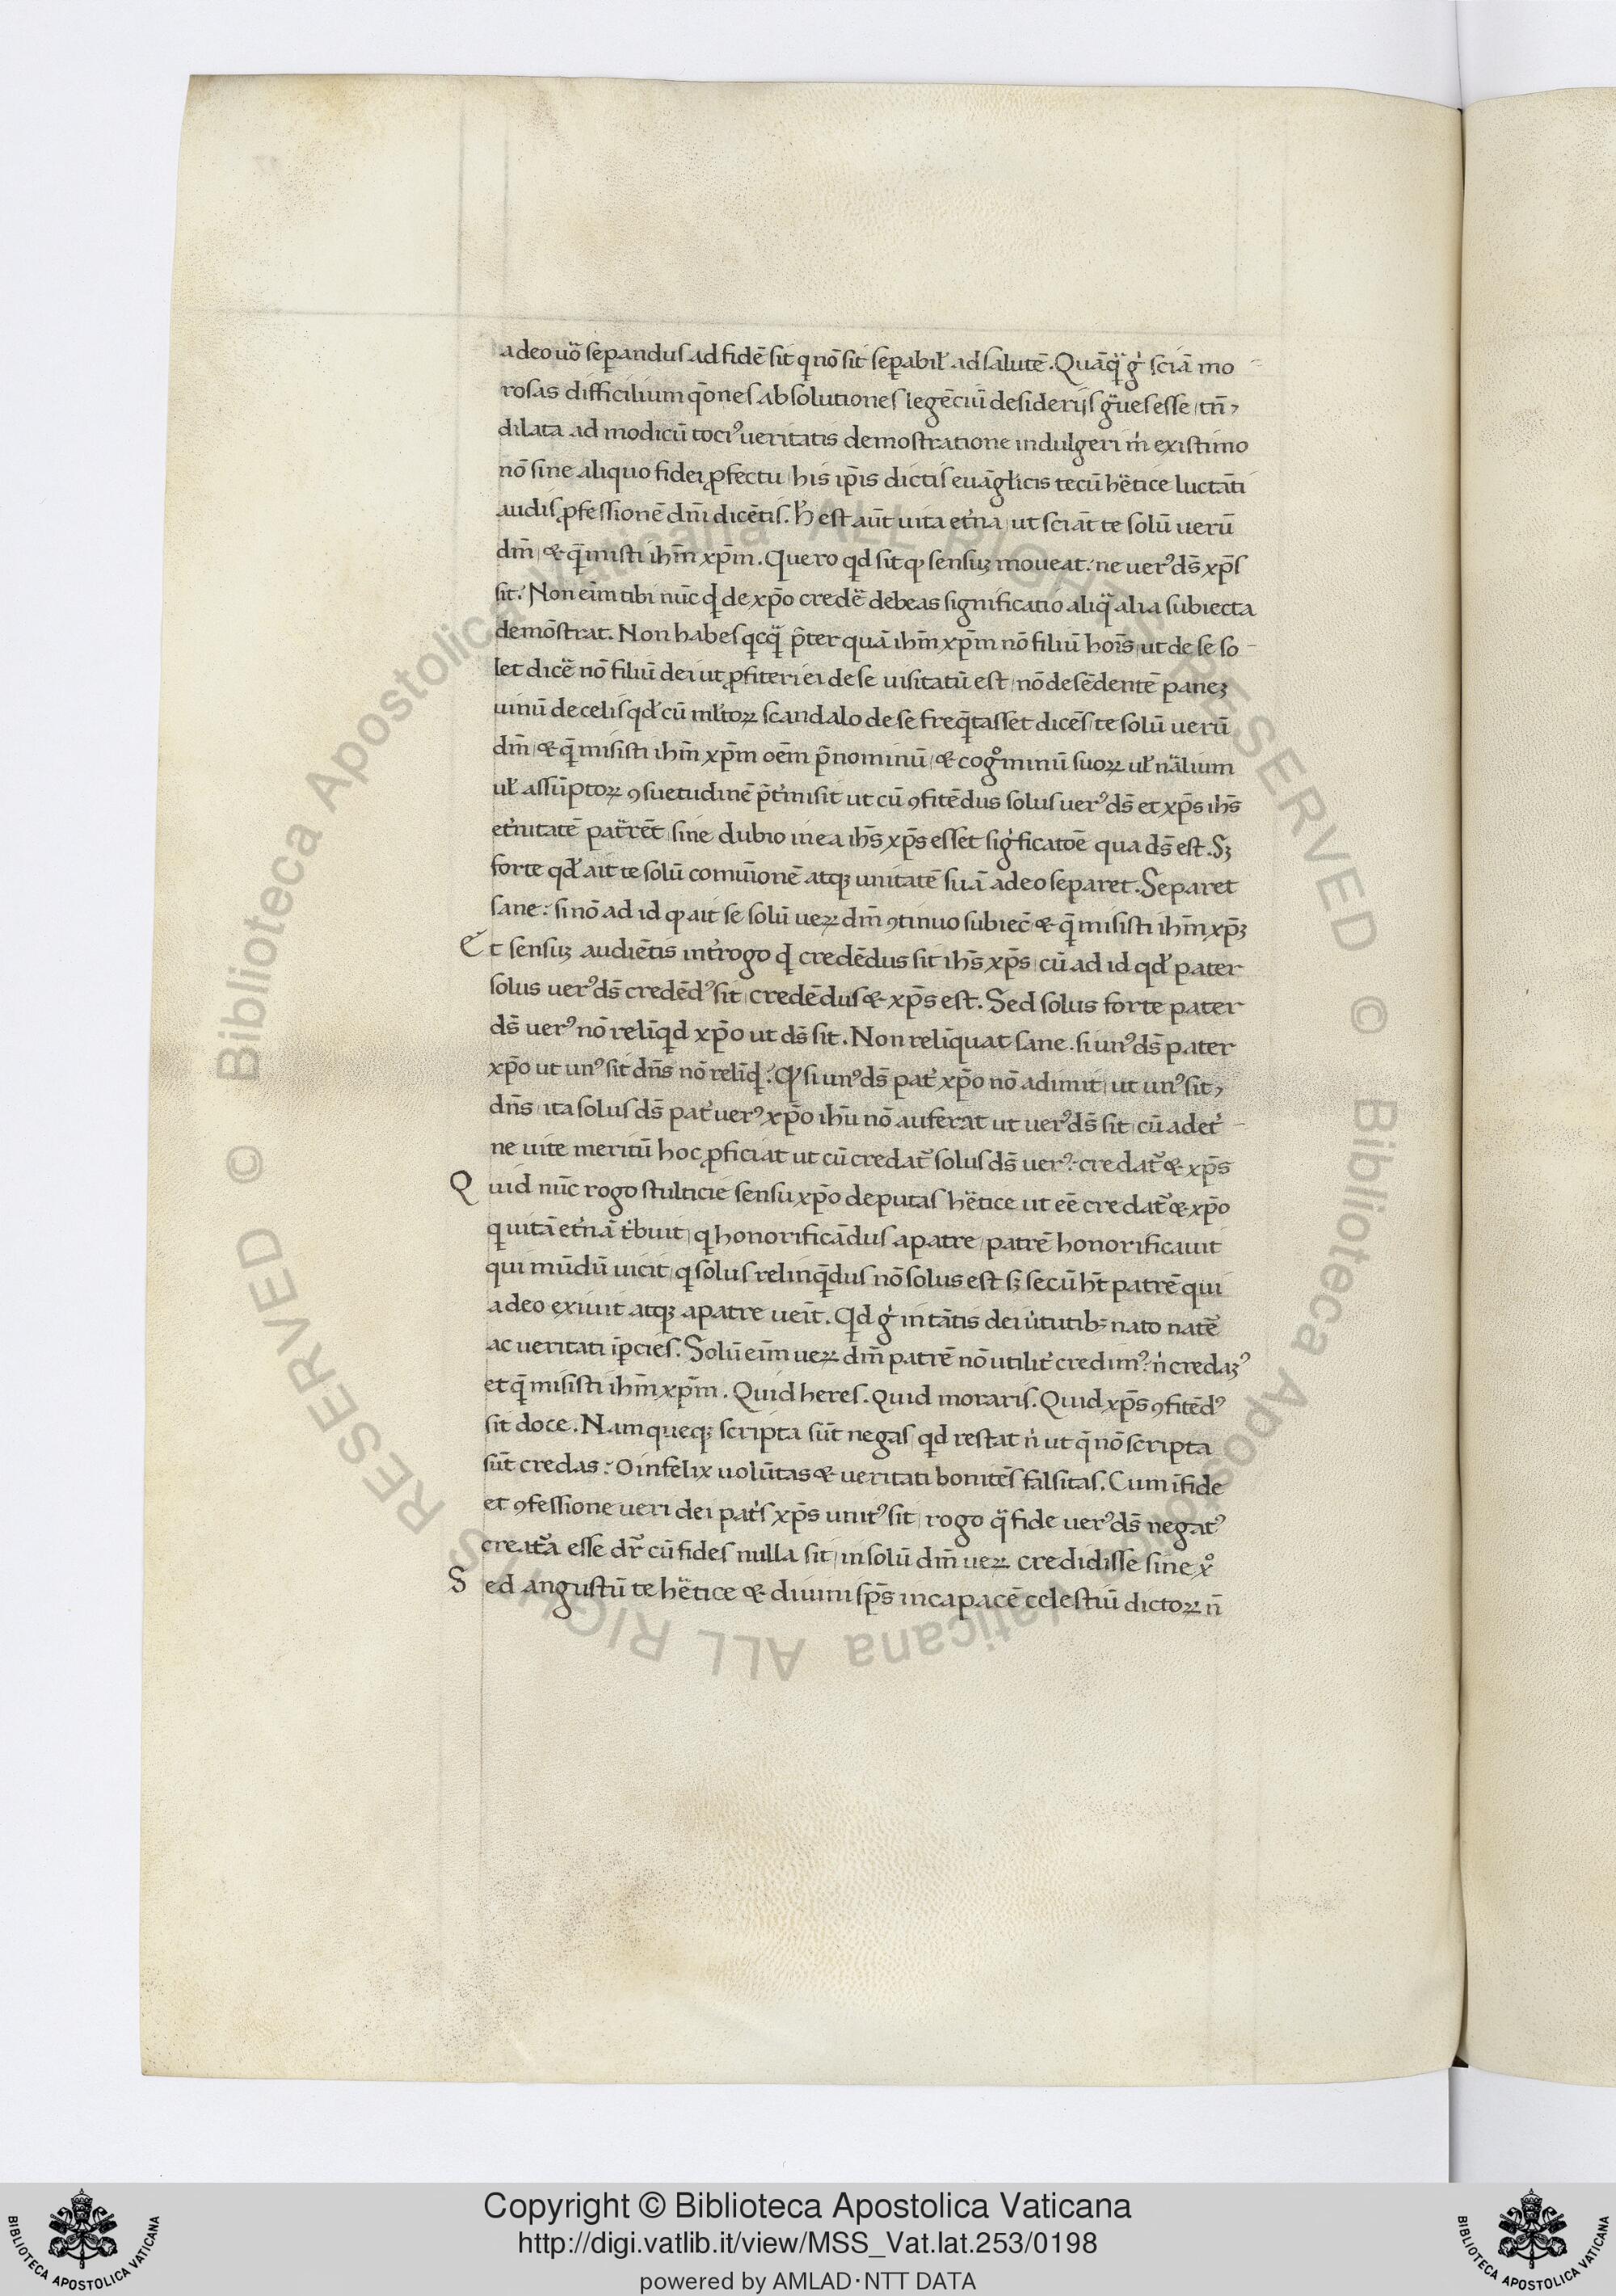 a deo uō seꝑandus ad fidē sit q nō sit seꝑabił ad salutē. Quāqͣ gͥ sciā mo
rosas difficilium qōnes absolutiones legēciū desiderijs gͣues esse tn̄
dilata ad modicū tociꝰ ueritatis demostratione indulgeri m̄ existimo
nō sine aliquo fidei ꝓfectu his ip̄is dictis euāgłicis tecū hētice luctāti
audis ꝓfessionē dm̄ dicētis. H̄ est aūt uita et̓na ut sciāt te solū uerū
dm̄ & q̄ misti ihm̄ xp̄m. Quero qd sit qͦ sensuꝫ moueat ne uerꝰ ds̄ xp̄s
sit. Non eīm tibi nūc qd de xp̄o credē debeas significatio aliqͣ alia subiecta
demōstrat. Non habes qcqͣ p̄ter quā ihm̄ xp̄m nō filiū hoīs ut de se so
let dicē nō filiū dei ut ꝓfiteri ei de se uisitatū est nō desēdentē paneꝫ
uiuū de celis qd̓ cū ml̓toꝝ scandalo de se freq̄tasset dicēs te solū uerū
dm̄ & q̄ misisti ihm̄ xp̄m oēm p̄nominū & cogͦminū suoꝝ uł nālium
uł assūptoꝝ ꝯsuetudinē p̄t̓misit ut cū ꝯfitēdus solus uerꝰ ds̄ et xp̄s ihs̄
et̓nitatē patͣrēt sine dubio in ea ihs̄ xp̄s esset sigͥficatōe qua ds̄ est. Sꝫ
forte qd̓ ait te solū comūionē atqꝫ unitatē suā a deo separet. Separet
sane si nō ad id qͦ ait se solū ueꝝ dm̄ ꝯtinuo subiec̄ & q̄ misisti ihm̄ xp̄ꝫ
Et sensuꝫ audiētis int̓rogo qd credēdus sit ihs̄ xp̄s cū ad id qd̓ pater
solus uerꝰ ds̄ credēdꝰ sit credēdus & xp̄s est. Sed solus forte pater
ds̄ uerꝰ nō relīqd xp̄o ut ds̄ sit. Non relīquat sane si unꝰ ds̄ pater
xp̄o ut unꝰ sit dn̄s nō relīq. Qͦ si unꝰ ds̄ pat̓ xp̄o nō adimit ut unꝰ sit
dn̄s ita solus ds̄ pat̓ uerꝰ xp̄o ihū nō auferat ut uerꝰ ds̄ sit cū ad et̓
ne uite meritū hoc ꝓficiat ut cū credat̄ solus ds̄ uerꝰ credat̄ & xp̄s
Quid nūc rogo stulticie sensu xp̄o deputas hētice ut eē credat̄ & xp̄o
q uitā et̓nā tͥbuit q honorificādus a patre patrē honorificauit
qui mūdū uicit q solus relinq̄dus nō solus est sꝫ secū ht̄ patrē qui
a deo exiuit atqꝫ a patre ueīt. Qd gͥ in tātis dei u̓tutibꝫ nato natē
ac ueritati īpcies. Solū eīm ueꝝ dm̄ patrē nō utilit̓ credimꝰ n̄ credaꝫꝰ
et q̄ misisti ihm̄ xp̄m. Quid heres. Quid moraris. Quid xp̄s ꝯfitēdꝰ
sit doce. Nam queqꝫ scripta sūt negas qd restat n̄ ut q̄ nō scripta
sūt credas: O infelix uolūtas & ueritati bonitēs falsitas. Cum īfide
et ꝯfessione ueri dei pat̓s xp̄s unitꝰ sit rogo qͣ fide uerꝰ ds̄ negatꝰ
creat̄a esse dr̄ cū fides nulla sit in solū dm̄ ueꝝ credidisse sine xͦ
Sed angustū te hētice & diuini sp̄s incapacē celestiū dictoꝝ n̄
Copyright © Biblioteca Apostolica Vaticana
http://digi.vatlib.it/view/MSS_Vat.lat.253/0198
powered by AMLAD·NTT DATA
BIBLIOTECA APOSTOLICA VATICANA
BIBLIOTECA APOSTOLICA VATICANA
© Biblioteca Apostolica Vaticana ALL RIGHTS RESERVED
© Biblioteca Apostolica Vaticana ALL RIGHTS RESERVED